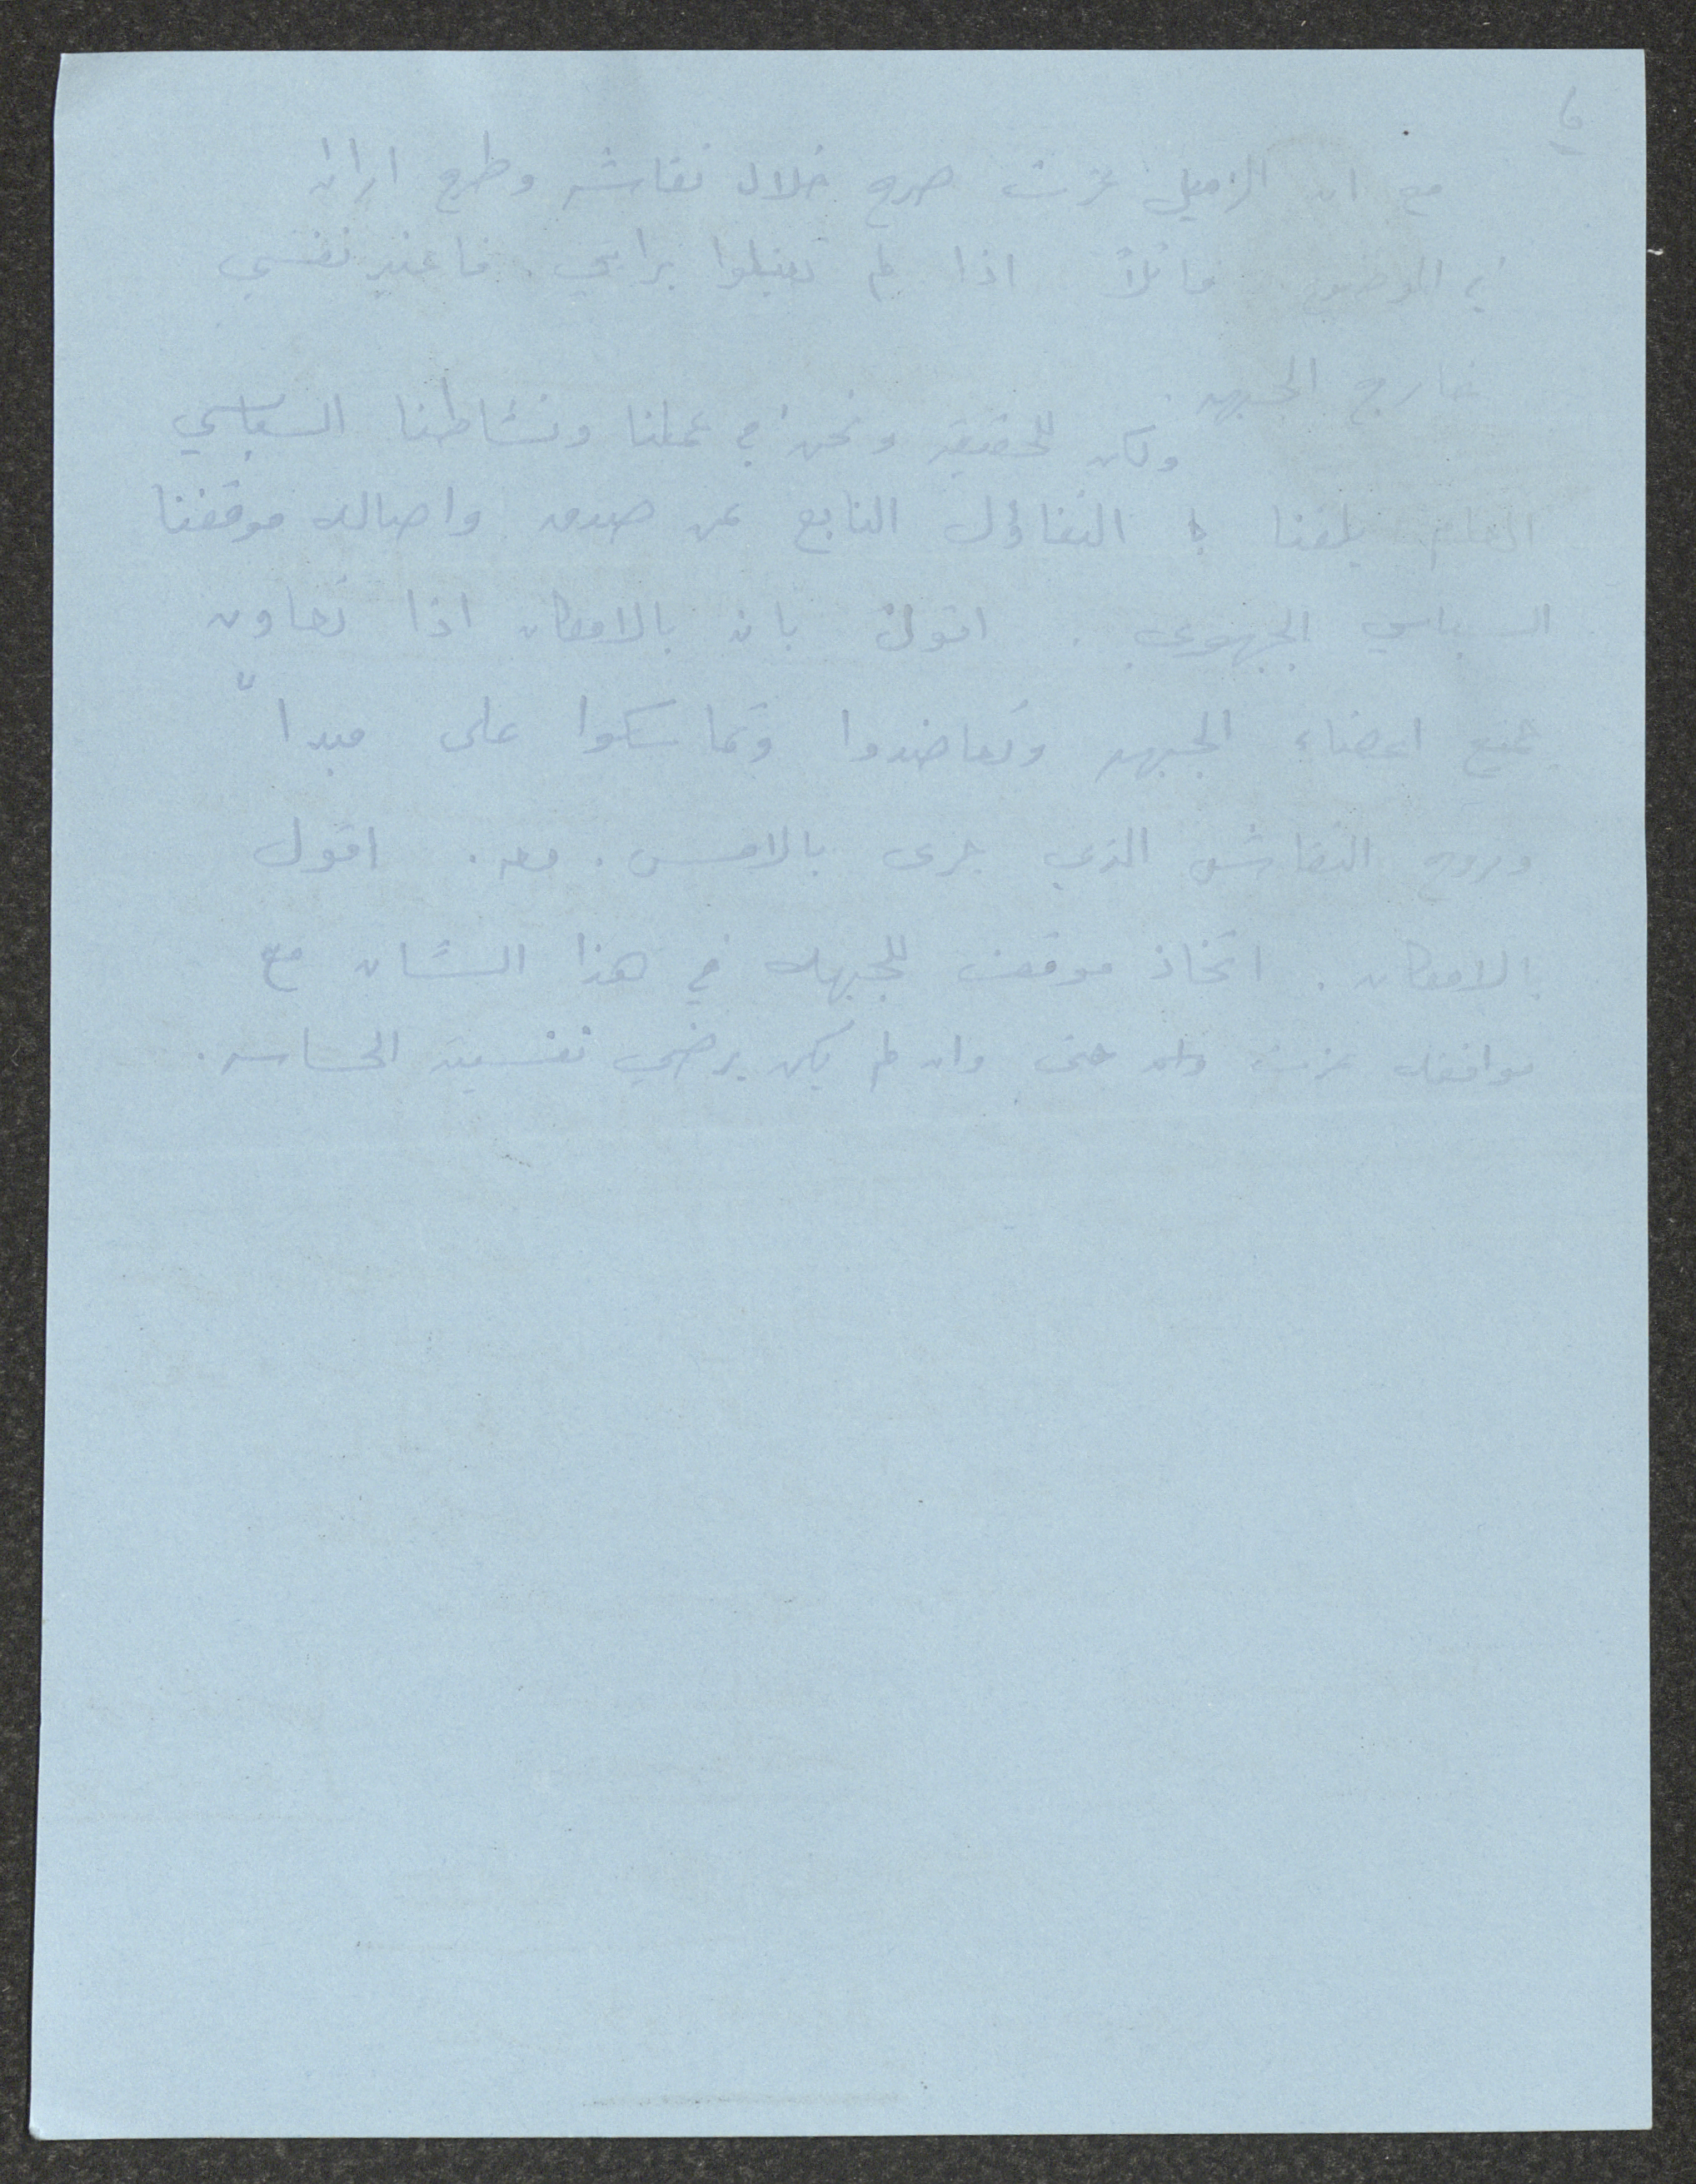 ٦
مع ان الزميل عزت صرح خلال نقاشه وطرح ارائه
في الموضوع قائلاً اذا لم تقبلوا برايي فاعتبر نفسي
خارج الجبهه.
ولكن للحقيقه ونحن في عملنا ونشاطنا السياسي
العام يلفنا التفاؤل النابع عن صدق واصاله موقفنا
السياسي الجبهوي. اقول بان بالامكان اذا تعاون
جميع اعضاء الجبهه وتعاضدوا وتماسكوا على مبدا
وروح النقاش الذي جرى بالامس. اقول
بالامكان. اتخاذ موقف للجبهه في هذا الشان مع
موافقه عزت حتى وان لم يكن يرضي نفسيته الحساسه.